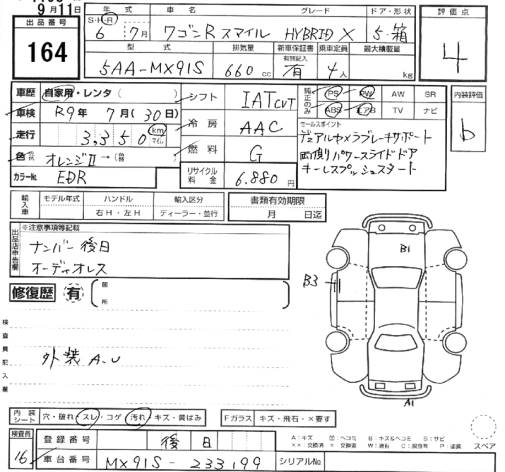 9月11日
出品番号
164
年式 車名 グレード ドア・形状
S・H・R 6年 7月 ワゴンR スマイル HYBRID X 5・箱
型式 排気量 新車保証書 乗車定員 最大積載量
有効記入
5AA-MX91S 660cc 有 4人 kg
評価点
4
内装評価
b
車歴 自家用・レンタ
車検 R9年 7月(30日)
走行 3,350 km マイル
色 オレンジII →
カラーNo. EDR
シフト IAT CVT
冷房 AAC
燃料 G
リサイクル料金 6,880円
純正のみ PS PW AW SR
ABS エアB TV ナビ
セールスポイント
デュアルカメラブレーキサポート
両側パワースライドドア
キーレスプッシュスタート
輸入車 モデル年式 ハンドル 輸入区分 書類有効期限
右H・左H ディーラー・並行 月 日迄
出品店申告欄
※注意事項等記載
ナンバー後日
オーディオレス
修復歴 有 箇所
検査員記入欄
外装 A.U
B1
B3
A1
内装シート 穴・破れ スレ・コゲ 汚れ キズ・黄ばみ Fガラス キズ・飛石・×要す
スペア
検査員
16
登録番号 後日
車台番号 MX91S-233199 シリアルNo
A:キズ